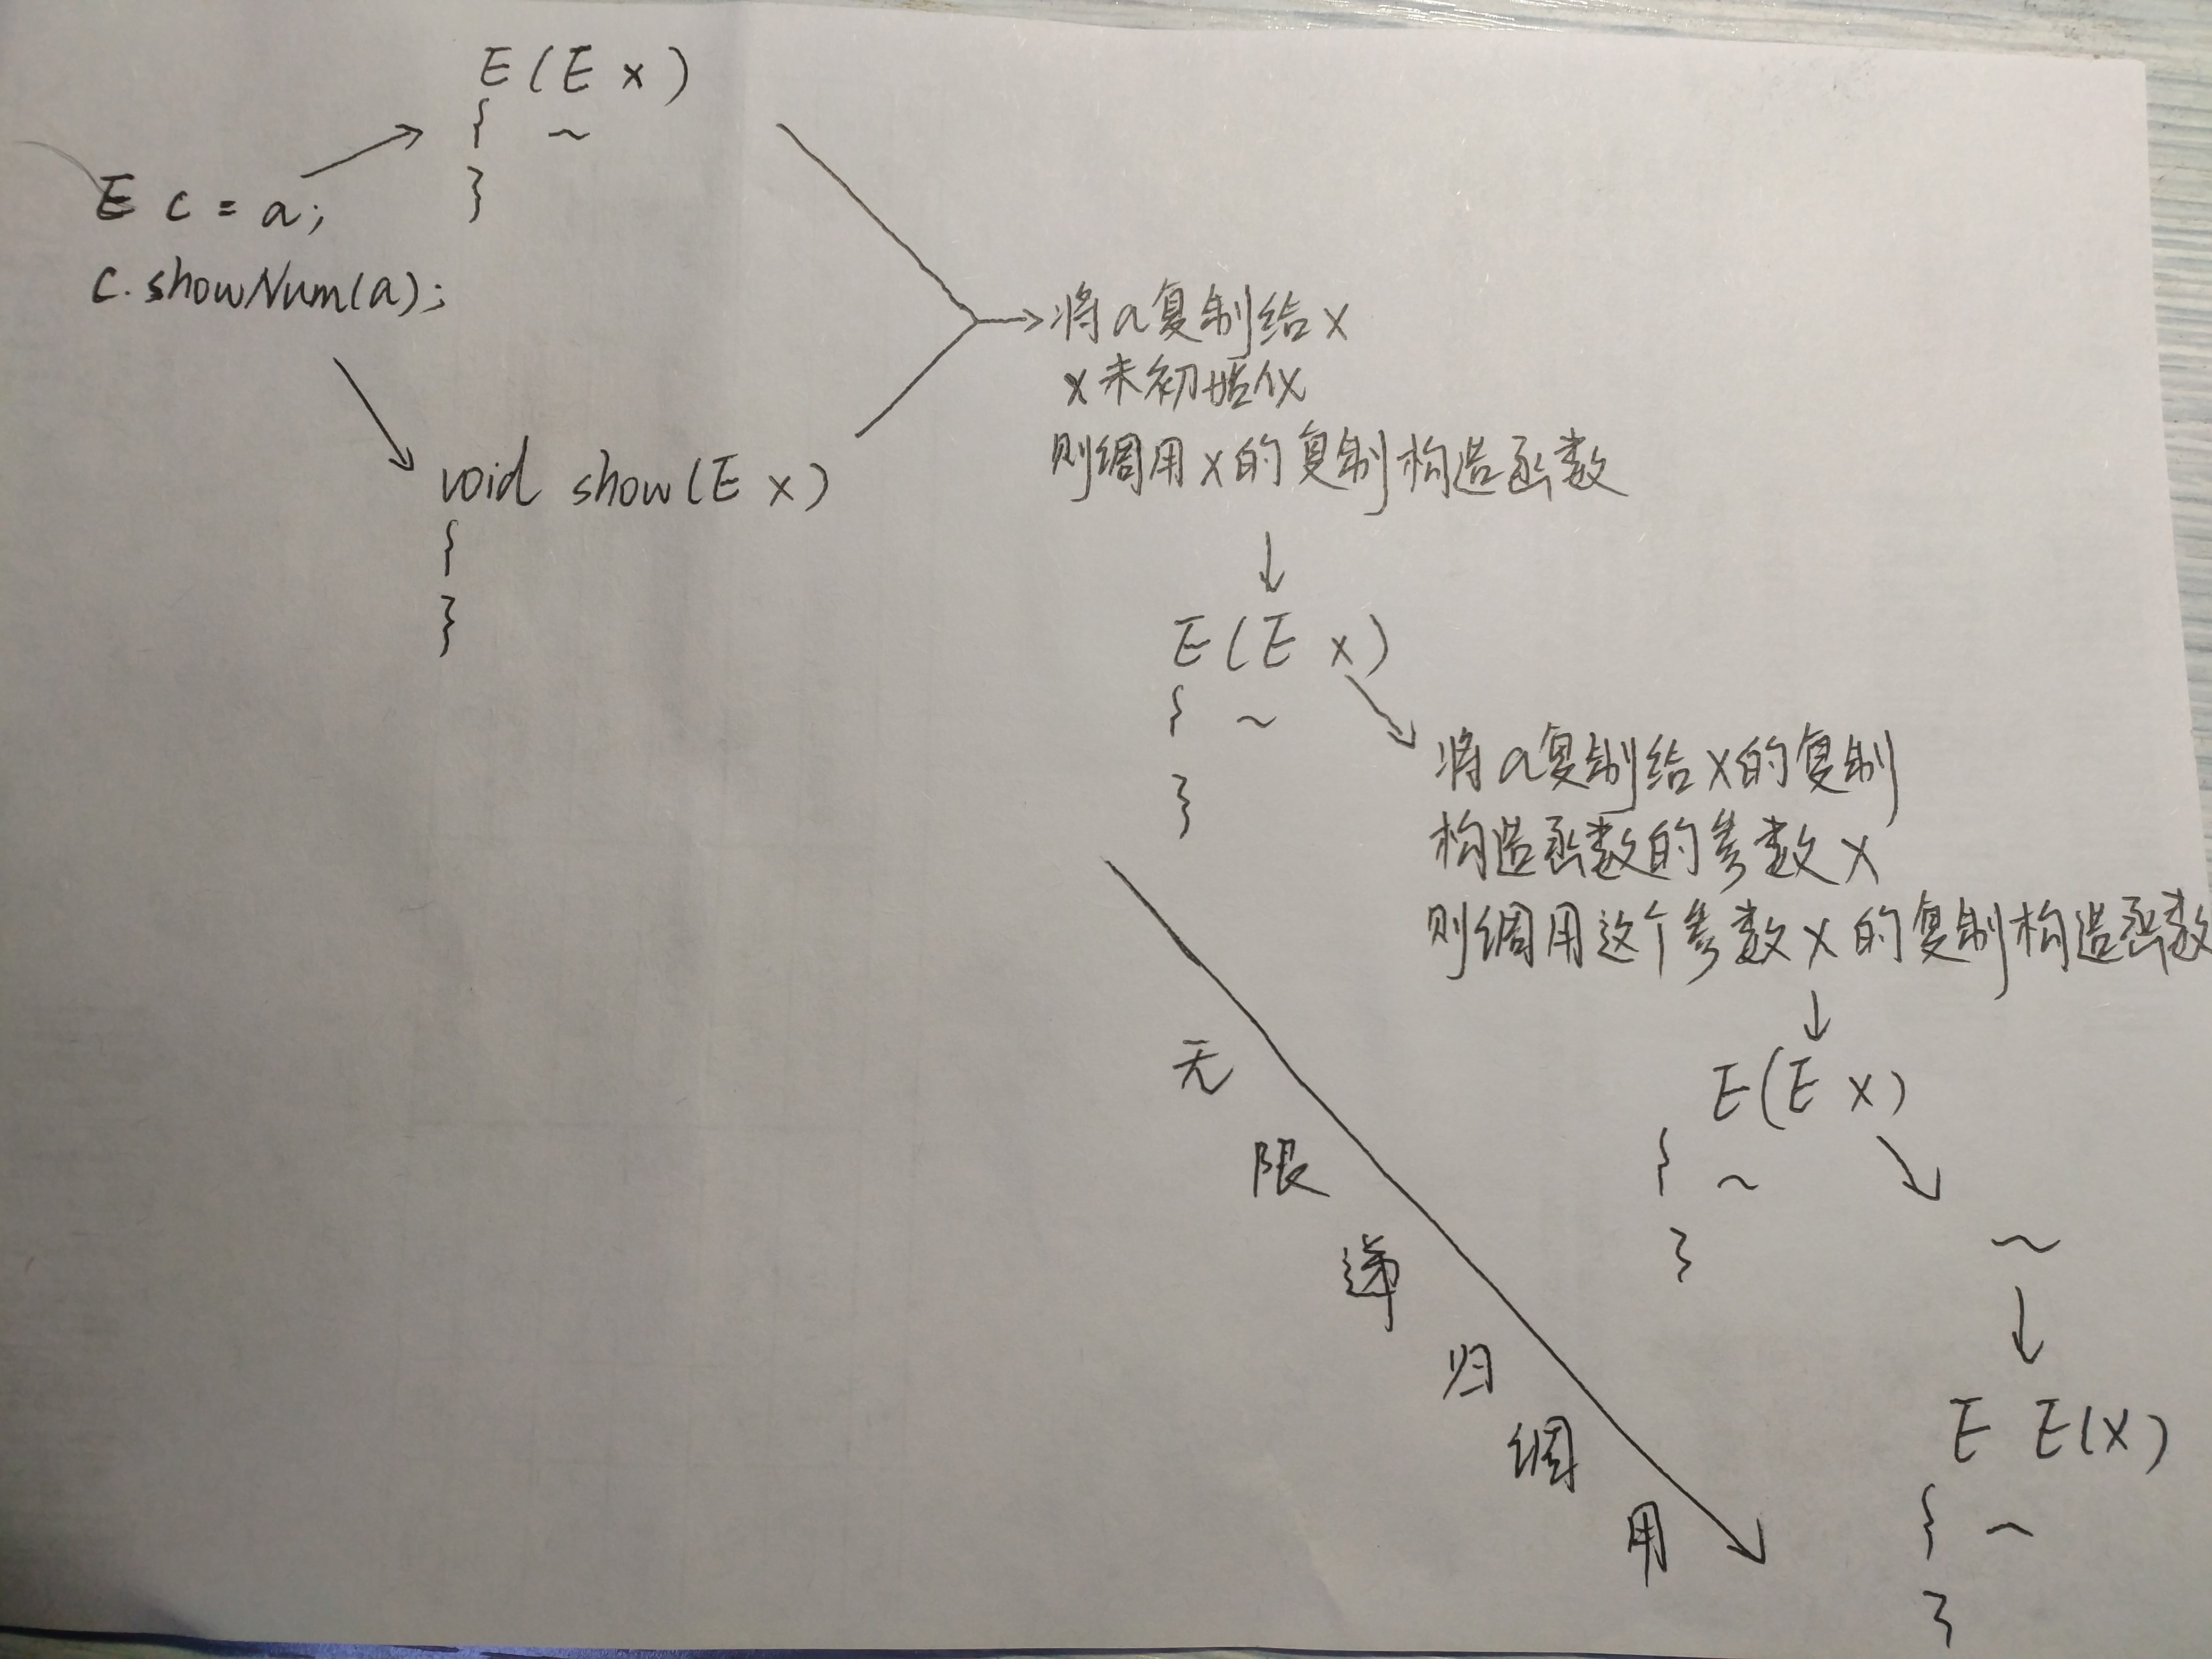 E(E x)
{ ~
}
E c = a;
c.showNum(a);
void show(E x)
{
}
将a复制给x
x未初始化
则调用x的复制构造函数
E(E x)
{ ~
}
将a复制给x的复制
构造函数的参数x
则调用这个参数x的复制构造函数
E(E x)
{ ~
}
~
E E(x)
{ ~
}
无
限
递
归
调
用